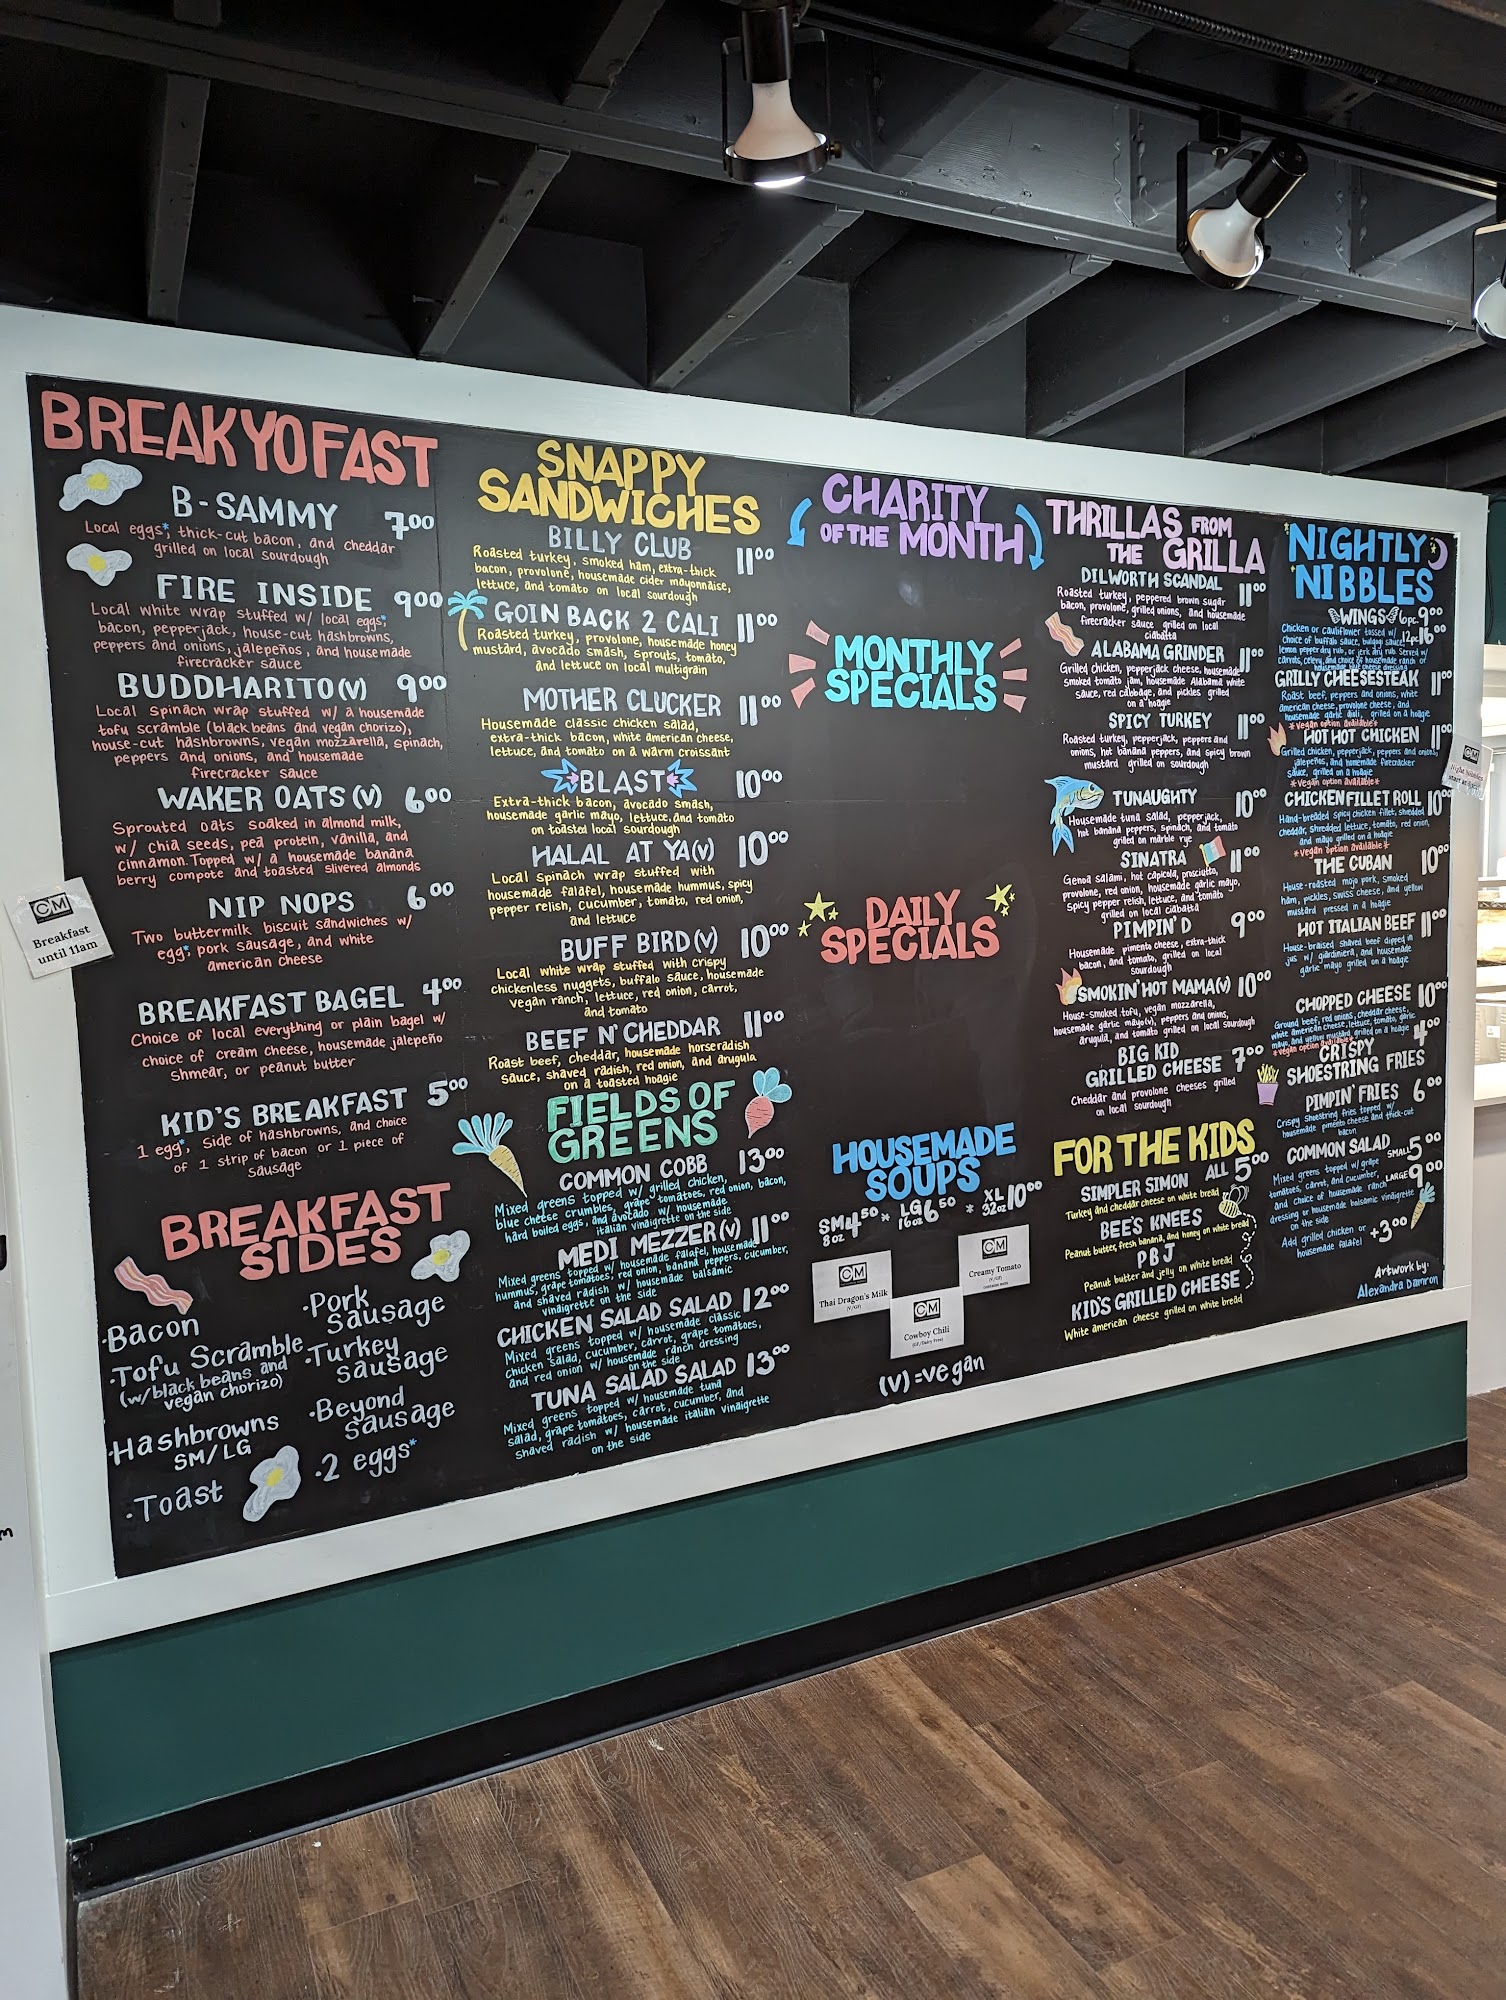 BREAKYOFAST
B-SAMMY 7⁰⁰
Local eggs*, thick-cut bacon, and cheddar
grilled on local sourdough
FIRE INSIDE 9⁰⁰
Local white wrap stuffed w/ local eggs*,
bacon, pepperjack, house-cut hashbrowns,
peppers and onions, jalepeños, and housemade
firecracker sauce
BUDDHARITO(V) 9⁰⁰
Local spinach wrap stuffed w/ a housemade
tofu scramble (black beans and vegan chorizo),
house-cut hashbrowns, vegan mozzarella, spinach,
peppers and onions, and housemade
firecracker sauce
WAKER OATS(V) 6⁰⁰
Sprouted oats soaked in almond milk,
w/ chia seeds, pea protein, vanilla, and
cinnamon. Topped w/ a housemade banana
berry compote and toasted slivered almonds
NIP NOPS 6⁰⁰
Two buttermilk biscuit sandwiches w/
egg*, pork sausage, and white
american cheese
BREAKFAST BAGEL 4⁰⁰
Choice of local everything or plain bagel w/
choice of cream cheese, housemade jalepeño
shmear, or peanut butter
KID'S BREAKFAST 5⁰⁰
1 egg*, side of hashbrowns, and choice
of 1 strip of bacon or 1 piece of
sausage
BREAKFAST
SIDES
·Bacon
·Tofu Scramble
(w/black beans and
vegan chorizo)
·Hashbrowns
SM/LG
·Toast
·Pork
sausage
·Turkey
sausage
·Beyond
sausage
·2 eggs*
CM
Breakfast
until 11am
SNAPPY
SANDWICHES
BILLY CLUB 11⁰⁰
Roasted turkey, smoked ham, extra-thick
bacon, provolone, housemade cider mayonnaise,
lettuce, and tomato on local sourdough
GOIN BACK 2 CALI 11⁰⁰
Roasted turkey, provolone, housemade honey
mustard, avocado smash, sprouts, tomato,
and lettuce on local multigrain
MOTHER CLUCKER 11⁰⁰
Housemade classic chicken salad,
extra-thick bacon, white american cheese,
lettuce, and tomato on a warm croissant
BLAST 10⁰⁰
Extra-thick bacon, avocado smash,
housemade garlic mayo, lettuce, and tomato
on toasted local sourdough
HALAL AT YA(V) 10⁰⁰
Local spinach wrap stuffed with
housemade falafel, housemade hummus, spicy
pepper relish, cucumber, tomato, red onion,
and lettuce
BUFF BIRD(V) 10⁰⁰
Local white wrap stuffed with crispy
chickenless nuggets, buffalo sauce, housemade
vegan ranch, lettuce, red onion, carrot,
and tomato
BEEF N' CHEDDAR 11⁰⁰
Roast beef, cheddar, housemade horseradish
sauce, shaved radish, red onion, and arugula
on a toasted hoagie
FIELDS OF
GREENS
COMMON COBB 13⁰⁰
Mixed greens topped w/ grilled chicken,
blue cheese crumbles, grape tomatoes, red onion, bacon,
hard boiled eggs, and avocado w/ housemade
italian vinaigrette on the side
MEDI MEZZER(V) 11⁰⁰
Mixed greens topped w/ housemade falafel, housemade
hummus, grape tomatoes, red onion, banana peppers, cucumber,
and shaved radish w/ housemade balsamic
vinaigrette on the side
CHICKEN SALAD SALAD 12⁰⁰
Mixed greens topped w/ housemade classic
chicken salad, cucumber, carrot, grape tomatoes,
and red onion w/ housemade ranch dressing
on the side
TUNA SALAD SALAD 13⁰⁰
Mixed greens topped w/ housemade tuna
salad, grape tomatoes, carrot, cucumber, and
shaved radish w/ housemade italian vinaigrette
on the side
CHARITY
OF THE MONTH
MONTHLY
SPECIALS
DAILY
SPECIALS
HOUSEMADE
SOUPS
SM 4⁵⁰ * LG 6⁵⁰ * XL 10⁰⁰
8oz 16oz 32oz
CM
Thai Dragon's Milk
(V/GF)
CM
Creamy Tomato
(V/GF)
CM
Cowboy Chili
(GF/Dairy Free)
(V)=vegan
THRILLAS FROM
THE GRILLA
DILWORTH SCANDAL 11⁰⁰
Roasted turkey, peppered brown sugar
bacon, provolone, grilled onions, and housemade
firecracker sauce grilled on local
ciabatta
ALABAMA GRINDER 11⁰⁰
Grilled chicken, pepperjack cheese, housemade
smoked tomato jam, housemade Alabama white
sauce, red cabbage, and pickles grilled
on a hoagie
SPICY TURKEY 11⁰⁰
Roasted turkey, pepperjack, peppers and
onions, hot banana peppers, and spicy brown
mustard grilled on sourdough
TUNAUGHTY 10⁰⁰
Housemade tuna salad, pepperjack,
hot banana peppers, spinach, and tomato
grilled on marble rye
SINATRA 11⁰⁰
Genoa salami, hot capicola, prosciutto,
provolone, red onion, housemade garlic mayo,
spicy pepper relish, lettuce, and tomato
grilled on local ciabatta
PIMPIN'D 9⁰⁰
Housemade pimento cheese, extra-thick
bacon, and tomato, grilled on local
sourdough
SMOKIN' HOT MAMA(V) 10⁰⁰
House-smoked tofu, vegan mozzarella,
housemade garlic mayo(v), peppers and onions,
arugula, and tomato grilled on local sourdough
BIG KID
GRILLED CHEESE 7⁰⁰
Cheddar and provolone cheeses grilled
on local sourdough
FOR THE KIDS
ALL 5⁰⁰
SIMPLER SIMON
Turkey and cheddar cheese on white bread
BEE'S KNEES
Peanut butter, fresh banana, and honey on white bread
PBJ
Peanut butter and jelly on white bread
KID'S GRILLED CHEESE
White american cheese grilled on white bread
NIGHTLY
NIBBLES
WINGS 6pc. 9⁰⁰
12pc. 16⁰⁰
Chicken or cauliflower tossed w/
choice of buffalo sauce, bulgogi sauce,
lemon pepper dry rub, or jerk dry rub. Served w/
carrots, celery, and choice of housemade ranch or
housemade blue cheese dressing
GRILLY CHEESESTEAK 11⁰⁰
Roast beef, peppers and onions, white
american cheese, provolone cheese, and
housemade garlic aioli, grilled on a hoagie
*vegan option available*
HOT HOT CHICKEN 11⁰⁰
Grilled chicken, pepperjack, peppers and onions,
jalepeños, and homemade firecracker
sauce, grilled on a hoagie
*vegan option available*
CHICKEN FILLET ROLL 10⁰⁰
Hand-breaded spicy chicken fillet, shredded
cheddar, shredded lettuce, tomato, red onion,
and mayo grilled on a hoagie
*vegan option available*
THE CUBAN 10⁰⁰
House-roasted mojo pork, smoked
ham, pickles, swiss cheese, and yellow
mustard pressed in a hoagie
HOT ITALIAN BEEF 11⁰⁰
House-braised shaved beef dipped in
jus w/ giardiniera, and housemade
garlic mayo grilled on a hoagie
CHOPPED CHEESE 10⁰⁰
Ground beef, red onions, cheddar cheese,
white american cheese, lettuce, tomato, garlic
mayo, and yellow mustard, grilled on a hoagie
*vegan option available*
CRISPY
SHOESTRING FRIES 4⁰⁰
PIMPIN' FRIES 6⁰⁰
Crispy shoestring fries topped w/
housemade pimento cheese and thick-cut
bacon
COMMON SALAD SMALL 5⁰⁰
LARGE 9⁰⁰
Mixed greens topped w/ grape
tomatoes, carrot, and cucumber,
and choice of housemade ranch
dressing or housemade balsamic vinaigrette
on the side
Add grilled chicken or
housemade falafel +3⁰⁰
Artwork by:
Alexandra Damron
CM